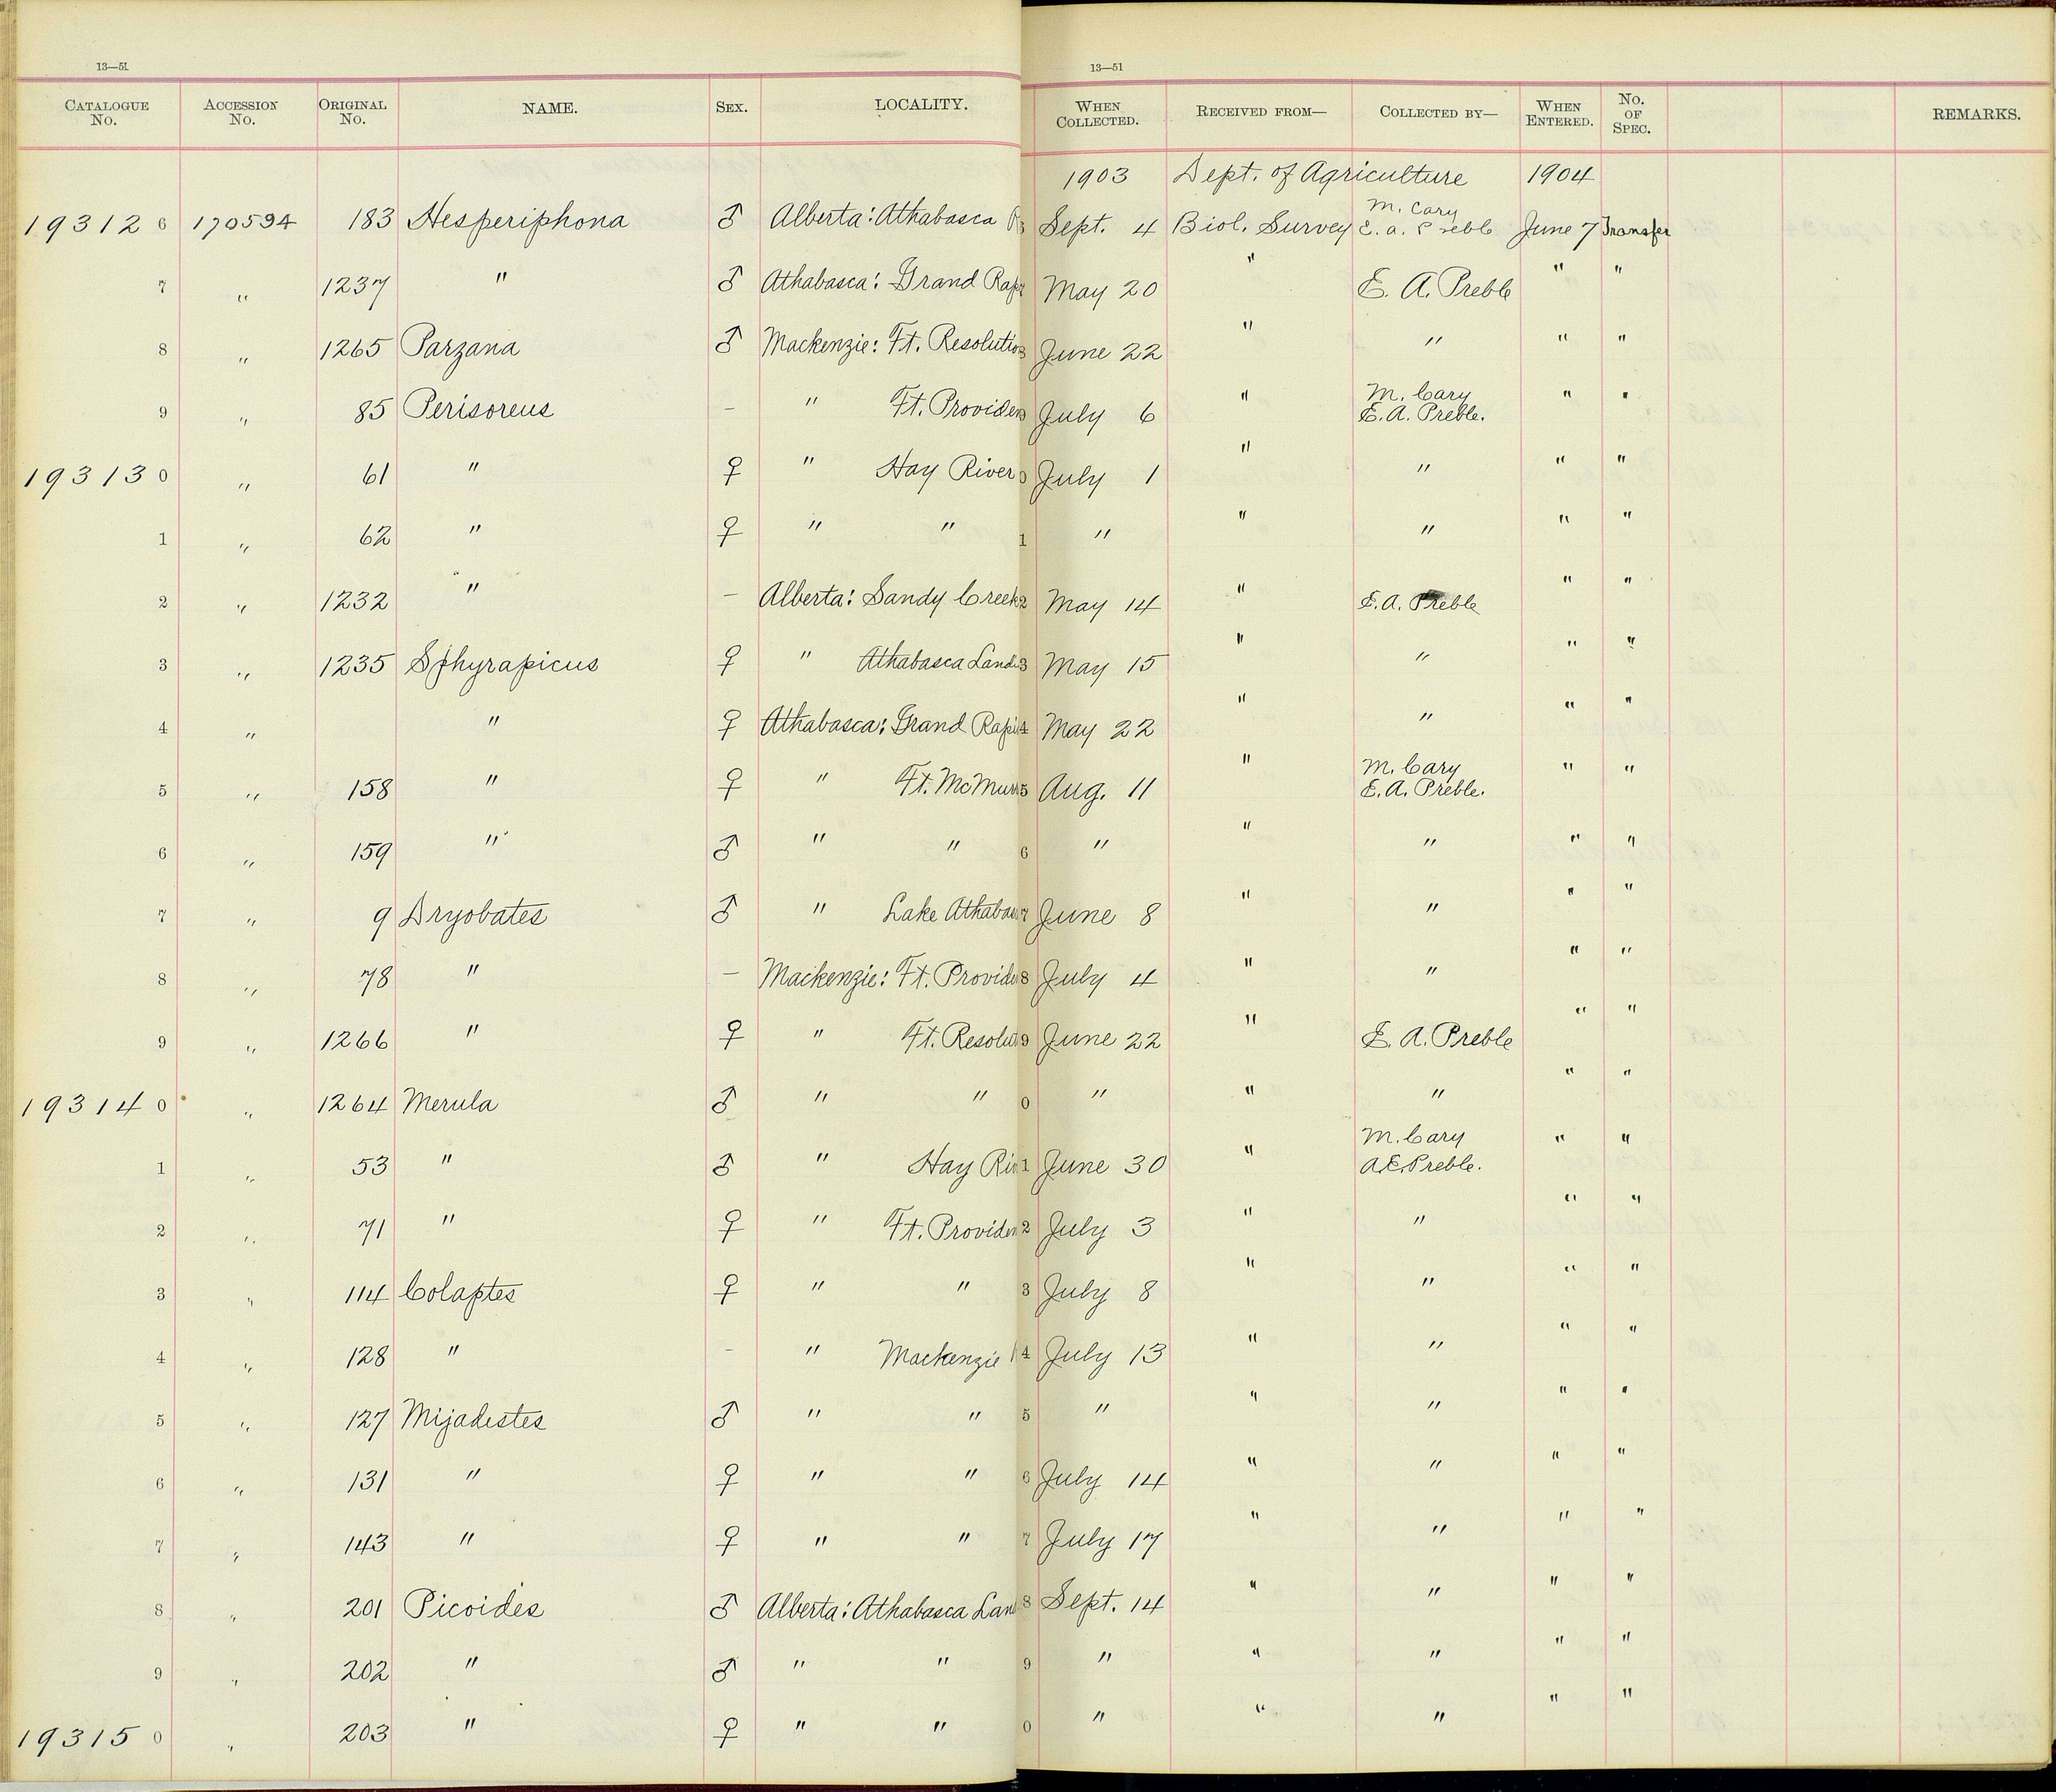 13—51
13—51
CATALOGUE No. ACCESSION No. ORIGINAL No. NAME. SEX. LOCALITY. WHEN COLLECTED. RECEIVED FROM— COLLECTED BY— WHEN ENTERED. No. OF SPEC. REMARKS.
1903 Dept. of Agriculture 1904
19312 6 170594 183 Hesperiphona ♂ Alberta: Athabasca Sept. 4 Biol. Survey M. Cary E. A. Preble June 7 Transfer
7 " 1237 " ♂ Athabasca: Grand Rap May 20 " E. A. Preble " "
8 " 1265 Parzana ♂ Mackenzie: Ft. Resolutio June 22 " " " "
9 " 85 Perisoreus – " Ft. Providen July 6 " M. Cary E. A. Preble. " "
19313 0 " 61 " ♀ " Hay River July 1 " " " "
1 " 62 " ♀ " " 1 " " " " "
2 " 1232 " – Alberta: Sandy Creek 2 May 14 " E. A. Preble " "
3 " 1235 Sphyrapicus ♀ " Athabasca Land 3 May 15 " " " "
4 " " ♀ Athabasca: Grand Rapi 4 May 22 " " " "
5 " 158 " ♀ " Ft. McMur 5 Aug. 11 " M. Cary E. A. Preble. " "
6 " 159 " ♂ " " 6 " " " " "
7 " 9 Dryobates ♂ " Lake Athabas 7 June 8 " " " "
8 " 78 " – Mackenzie: Ft. Provide 8 July 4 " " " "
9 " 1266 " ♀ " Ft. Resolut 9 June 22 " E. A. Preble " "
19314 0 " 1264 Merula ♂ " " 0 " " " " "
1 " 53 " ♂ " Hay Riv 1 June 30 " M. Cary A. E. Preble. " "
2 " 71 " ♀ " Ft. Providen 2 July 3 " " " "
3 " 114 Colaptes ♀ " " 3 July 8 " " " "
4 " 128 " – " Mackenzie 4 July 13 " " " "
5 " 127 Mijadestes ♂ " " 5 " " " " "
6 " 131 " ♀ " " 6 July 14 " " " "
7 " 143 " ♀ " " 7 July 17 " " " "
8 " 201 Picoides ♂ Alberta: Athabasca Lan 8 Sept. 14 " " " "
9 " 202 " ♂ " " 9 " " " " "
19315 0 " 203 " ♀ " " 0 " " " " "